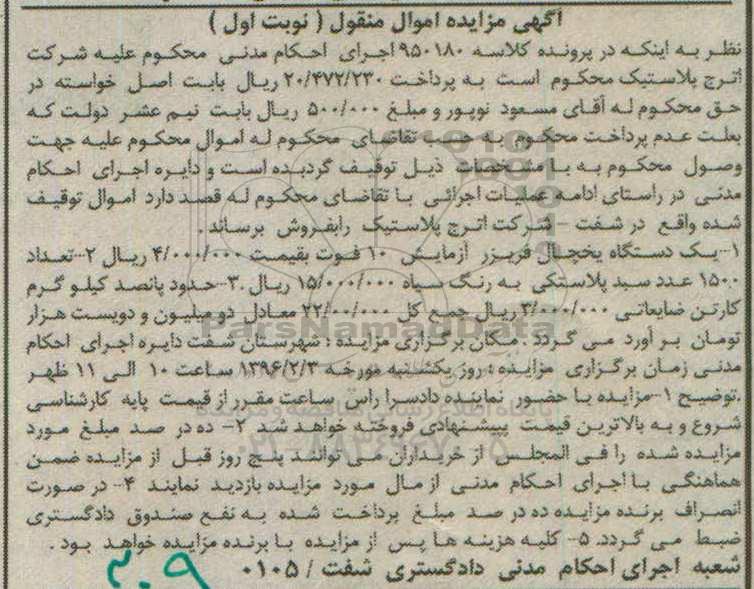 آگهی مزایده اموال منقول ( نوبت اول )
نظر به اینکه در پرونده کلاسه ۹۵۰۱۸۰ اجرای احکام مدنی محکوم علیه شرکت
اترج پلاستیک محکوم است به پرداخت ۲۰/۴۷۲/۲۳۰ ریال بابت اصل خواسته در
حق محکوم له آقای مسعود نوپور و مبلغ ۵۰۰/۰۰۰ ریال بابت نیم عشر دولت که
بعلت عدم پرداخت محکوم به حسب تقاضای محکوم له اموال محکوم علیه جهت
وصول محکوم به با مشخصات ذیل توقیف گردیده است و دایره اجرای احکام
مدنی در راستای ادامه عملیات اجرائی با تقاضای محکوم له قصد دارد اموال توقیف
شده واقع در شفت - شرکت اترج پلاستیک رابفروش برساند .
۱-یک دستگاه یخچال فریزر آزمایش ۱۰ فوت بقیمت ۴/۰۰۰/۰۰۰ ریال ۲-تعداد
۱۵۰۰ عدد سبد پلاستکی به رنگ سیاه ۱۵/۰۰۰/۰۰۰ ریال .۳-حدود پانصد کیلو گرم
کارتن ضایعاتی ۳/۰۰۰/۰۰۰ ریال جمع کل ۲۲/۰۰/۰۰۰ معادل دو میلیون و دویست هزار
تومان بر آورد می گردد . مکان برگزاری مزایده : شهرستان شفت دایره اجرای احکام
مدنی زمان برگزاری مزایده : روز یکشنبه مورخه ۱۳۹۶/۲/۳ ساعت ۱۰ الی ۱۱ ظهر
.توضیح ۱-مزایده با حضور نماینده دادسرا راس ساعت مقرر از قیمت پایه کارشناسی
شروع و به بالاترین قیمت پیشنهادی فروخته خواهد شد ۲- ده در صد مبلغ مورد
مزایده شده را فی المجلس از خریداران می توانند پنج روز قبل از مزایده ضمن
هماهنگی با اجرای احکام مدنی از مال مورد مزایده بازدید نمایند ۴- در صورت
انصراف برنده مزایده ده در صد مبلغ پرداخت شده به نفع صندوق دادگستری
ضبط می گردد. ۵- کلیه هزینه ها پس از مزایده با برنده مزایده خواهد بود .
شعبه اجرای احکام مدنی دادگستری شفت / ۰۱۰۵
۳۰۹
ParsNamadData
پایگاه اطلاع رسانی مناقصه و مزایده